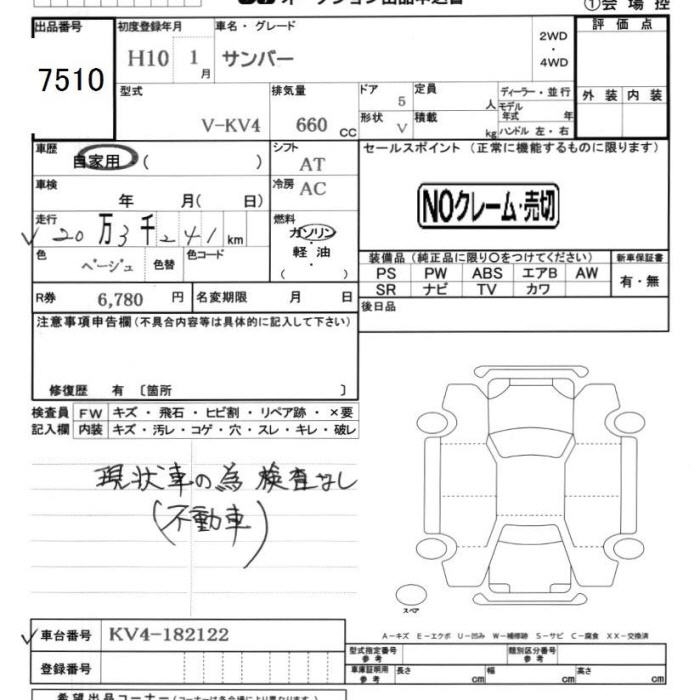 オークション出品申込書
①会場控
出品番号 初度登録年月 車名・グレード 評価点
7510 H10 1月 サンバー 2WD・4WD
外装 内装
型式 排気量 ドア 定員 ディーラー・並行
V-KV4 660 CC 5 人 モデル年式 年
形状 積載
V kg ハンドル 左・右
車歴 シフト セールスポイント (正常に機能するものに限ります)
自家用 ( ) AT
車検 冷房
年 月( 日) AC
NOクレーム・売切
走行 燃料
✓ 20万3千241km ガソリン
軽油
( )
色 色替 色コード
ベージュ
装備品 (純正品に限り○をつけてください) 新車保証書
PS PW ABS エアB AW 有・無
SR ナビ TV カワ
R券 6,780 円 名変期限 月 日
後日品
注意事項申告欄(不具合内容等は具体的に記入して下さい)
修復歴 有 〔箇所 〕
検査員 FW キズ・飛石・ヒビ割・リペア跡・×要
記入欄 内装 キズ・汚レ・コゲ・穴・スレ・キレ・破レ
現状車の為検査なし
(不動車)
スペア
✓ 車台番号 KV4-182122
A-キズ E-エクボ U-凹み W-補修跡 S-サビ C-腐食 XX-交換済
型式指定番号 参考 類別区分番号 参考
登録番号
車庫証明用 参考 長さ cm 幅 cm 高さ cm
希望出品コーナー(コーナーは各会場により異なります)